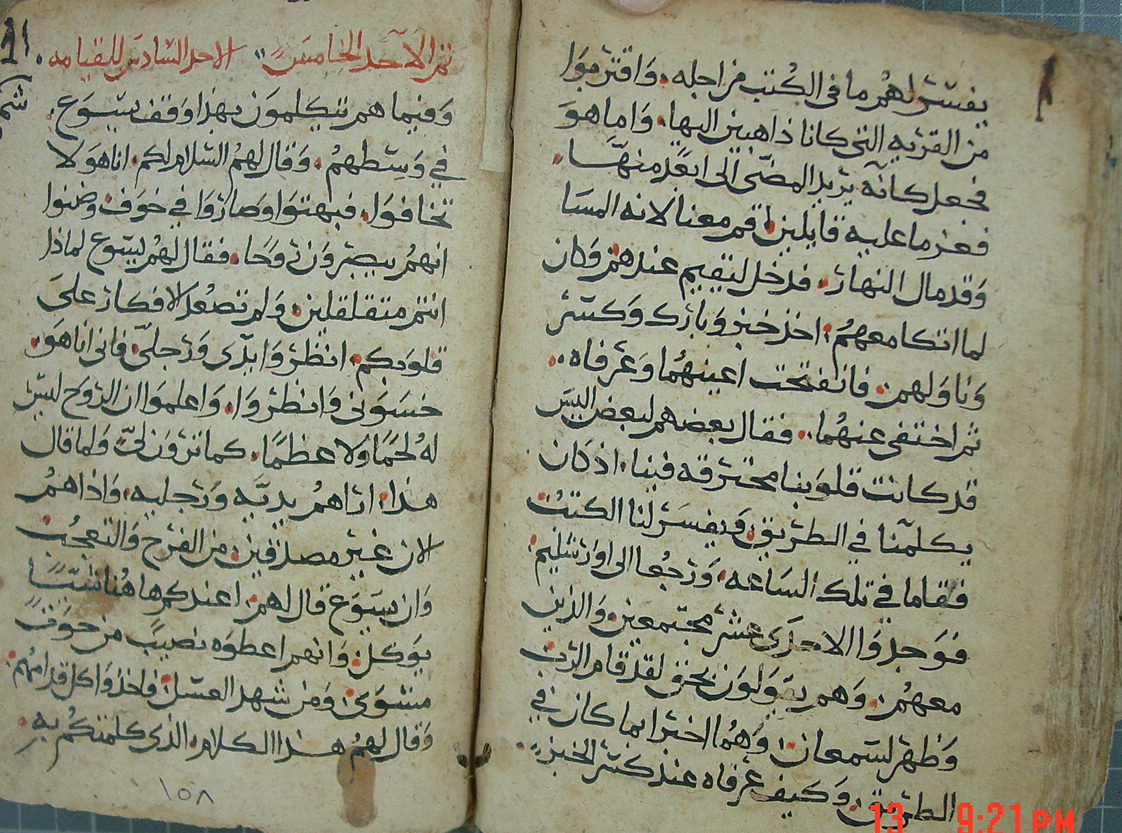 يفسر لهم ما في الكتب من اجله. واقتربوا
من القريه التي كانا ذاهبين اليها. واما هو
فجعل كانه يريد المضى الى ابعد منها.
فعزما عليه قايلين اقم معنا لانه المسا
وقد مال النهار. فدخل ليقيم عندهم وكان
لما اتكا معهم. اخذ خبز وبارك وكسر
وناولهم. فانفتحت اعينهما وعرفاه.
ثم اختفى عنهما. فقال بعضهم لبعض اليس
قد كانت قلوبنا محترقه فينا. اذ كان
يكلمنا في الطريق ويفسر لنا الكتب
فقاما في تلك الساعه. ورجعا الى اورشليم.
فوجدوا الاحدى عشر مجتمعين. والذين
معهم. وهم يقولون بحق لقد قام الرب
وظهر لسمعان. وهما اخبرا بما كان في
الطريق. وكيف عرفاه عند كسر الخبز.
تم الاحد الخامس. الاحد السادس للقيامه.
وفيما هم يتكلمون بهذا وقف يسوع.
في وسطهم. وقال لهم السلام لكم. انا هو لا
تخافوا. فبهتوا وصاروا في خوف وضنوا
انهم يبصرون روحا. فقال لهم يسوع لماذا
انتم متقلقلين. ولم تصعد الافكار على
قلوبكم. انظروا ايدى ورجلى. فانى انا هو.
جسونى وانظروا. واعلموا ان الروح ليس
له لحما ولا عظما. كما ترون لي ولما قال
هذا. اراهم يديه ورجليه. واذا هم
الان غير مصدقين. من الفرح والتعجب
وان يسوع قال لهم. اعندكم هاهنا شيا
يوكل. وانهم اعطوه نصيب من حوت
مشوى. ومن شهد العسل. فاخذ واكل قدامهم.
وقال لهم هذا الكلام. الذى كلمتكم به.
١٥٨
13 9:21 PM